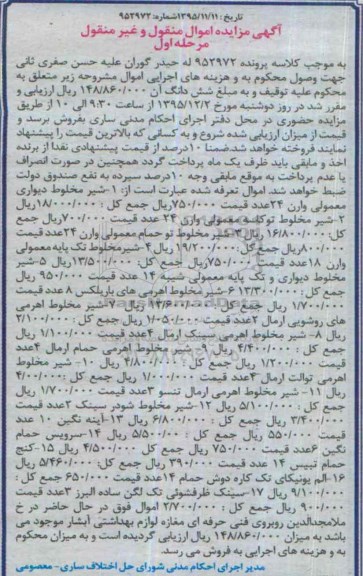 تاریخ: ۱۳۹۵/۱۱/۱۱ شماره: ۹۵۲۹۷۲
آگهی مزایده اموال منقول و غیر منقول
مرحله اول
به موجب کلاسه پرونده ۹۵۲۹۷۲ له حیدر گوران علیه حسن صفری ثانی
جهت وصول محکوم به و هزینه های اجرایی اموال مشروحه زیر متعلق به
محکوم علیه توقیف و به مبلغ شش دانگ آن ۱۴۸/۸۶۰/۰۰۰ ریال ارزیابی و
مقرر شد در روز دوشنبه مورخ ۱۳۹۵/۱۲/۲ از ساعت ۹:۳۰ الی ۱۰ از طریق
مزایده حضوری در محل دفتر اجرای احکام مدنی ساری بفروش برسد و
قیمت از میزان ارزیابی شده شروع و به کسانی که بالاترین قیمت را پیشنهاد
نمایند فروخته خواهد شد.ضمنا ۱۰درصد از قیمت پیشنهادی نقدا از برنده
اخذ و مابقی باید ظرف یک ماه پرداخت گردد همچنین در صورت انصراف
یا عدم پرداخت به موقع مابقی وجه ۱۰درصد سپرده به نفع صندوق دولت
ضبط خواهد شد. اموال تعرفه شده عبارت است از: ۱-شیر مخلوط دیواری
معمولی وارن ۲۴عدد قیمت ۷۵۰/۰۰۰ریال جمع کل : ۱۸/۰۰۰/۰۰۰ریال
۲-شیر مخلوط توکاسه معمولی وارن ۲۴ عدد قیمت ۷۰۰/۰۰۰ریال جمع
کل: ۱۶/۸۰۰/۰۰۰ ۳-شیر مخلوط تو حمام معمولی وارن ۲۴عدد قیمت
۸۰۰/۰۰۰ریال جمع کل: ۱۹/۲۰۰/۰۰۰ ریال ۴-شیرمخلوط تک پایه معمولی
وارن ۱۸عدد قیمت ۷۵۰/۰۰۰ریال جمع کل: ۱۳/۵۰۰/۰۰۰ریال ۵-شیر
مخلوط دیواری و تک پایه معمولی شیبه ۱۴ عدد قیمت ۹۵۰/۰۰۰ ریال
جمع کل: ۱۳/۳۰۰/۰۰۰ ۶-شیر مخلوط اهرمی های باریلکس ۸ عدد قیمت
۱/۷۰۰/۰۰۰ ریال جمع کل: ۱۳/۶۰۰/۰۰۰ ریال ۷-شیر مخلوط اهرمی
های روشویی ارمال ۲عدد قیمت ۱/۰۵۰/۰۰۰ ریال جمع کل: ۲/۱۰۰/۰۰۰
ریال ۸- شیر مخلوط اهرمی سینک ارمال ۴عدد قیمت ۱/۱۰۰/۰۰۰ ریال
جمع کل : ۴/۴۰۰/۰۰۰ ریال ۹- شیر مخلوط اهرمی حمام ارمال ۴عدد
قیمت ۱/۲۰۰/۰۰۰ ریال جمع کل : ۴/۸۰۰/۰۰۰ ریال ۱۰- شیر مخلوط
اهرمی توالت ارمال ۴عدد قیمت ۱/۰۰۰/۰۰۰ ریال جمع کل : ۴/۰۰۰/۰۰۰
ریال ۱۱- شیر مخلوط اهرمی ارمال تنسو ۳عدد قیمت ۱/۷۰۰/۰۰۰ ریال
جمع کل : ۵/۱۰۰/۰۰۰ ریال ۱۲- شیر مخلوط شودر سینک ۲عدد قیمت
۳/۴۰۰/۰۰۰ ریال جمع کل : ۶/۸۰۰/۰۰۰ ریال ۱۳-آینه نگین ۱۰ عدد
قیمت ۵۵۰/۰۰۰ ریال جمع کل : ۵/۵۰۰/۰۰۰ ریال ۱۴-سرویس حمام
نگین ۶عدد قیمت ۷۵۰/۰۰۰ ریال جمع کل ۴/۵۰۰/۰۰۰ ریال ۱۵-کنج
حمام تیبیس ۱۴ عدد قیمت ۳۹۰/۰۰۰ ریال جمع کل: ۵/۴۶۰/۰۰۰ ریال
۱۶-الم یونیکای تک کاره دوش حمام ۱۴عدد قیمت ۶۵۰/۰۰۰ جمع کل:
۹/۱۰۰/۰۰۰ ریال ۱۷-سینک ظرفشوئی تک لگن ساده البرز ۳عدد قیمت
۹۰۰/۰۰۰ ریال جمع کل: ۲/۷۰۰/۰۰۰ اموال فوق در حال حاضر در خ
ملامجدالدین روبروی فنی حرفه ای مغازه لوازم بهداشتی آبشار موجود می
باشد به میزان ۱۴۸/۸۶۰/۰۰۰ ریال ارزیابی گردیده است و به میزان محکوم
به و هزینه های اجرایی به فروش می رسد.
مدیر اجرای احکام مدنی شورای حل اختلاف ساری- معصومی